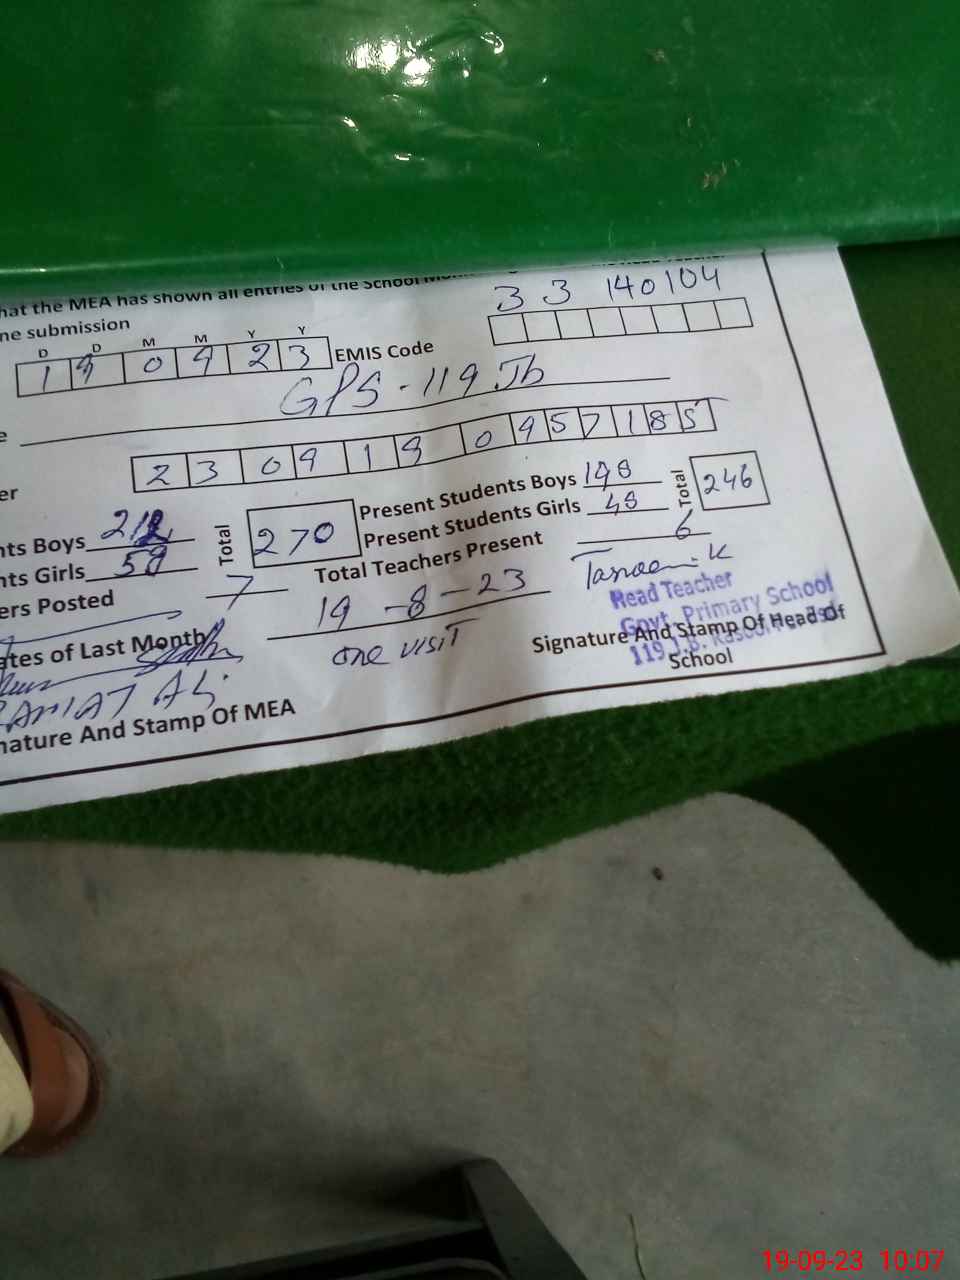 hat the MEA has shown all entries of the School
ne submission
D D M M Y Y
1 9 0 9 2 3 EMIS Code 3 3 140104
GPS - 119 Jb
er 2 3 0 9 1 9 0 9 5 7 1 8 5
nts Boys 212 Total 270 Present Students Boys 198 Total 246
nts Girls 58 Present Students Girls 48
ers Posted 7 Total Teachers Present 6
ates of Last Month 19 - 8 - 23
one visit
Head Teacher
Govt. Primary School
119 J.B.
Signature And Stamp Of Head Of
School
nature And Stamp Of MEA
19-09-23 10:07